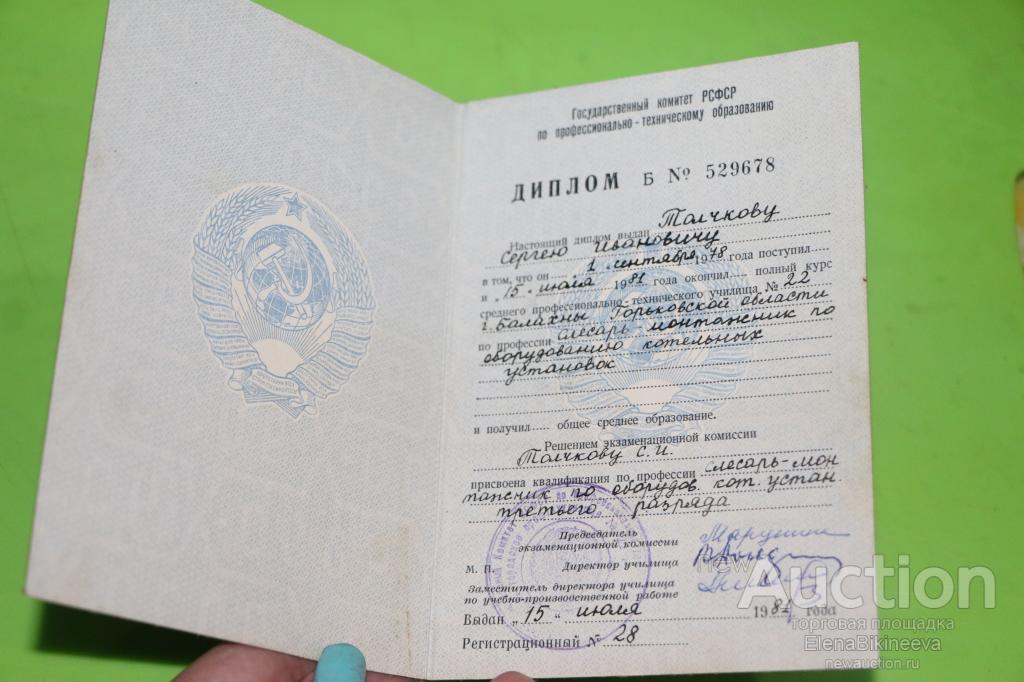 Государственный комитет РСФСР
по профессионально-техническому образованию
ДИПЛОМ Б № 529678
Настоящий диплом выдан Толчкову
Сергею Ивановичу
в том, что он 1 сентября 1978 года поступил
и „15" июля 1981 года окончил полный курс
среднего профессионально-технического училища № 22
г. Балахны Горьковской области
по профессии слесарь-монтажник по
оборудованию котельных
установок
и получил общее среднее образование.
Решением экзаменационной комиссии
Толчкову С. И.
присвоена квалификация по профессии слесарь-мон
тажник по оборудов. кот. устан.
третьего разряда
Председатель
экзаменационной комиссии
М. П. Директор училища
Заместитель директора училища
по учебно-производственной работе
Выдан „15" июля 1981 года
Регистрационный № 28
new Auction
торговая площадка
ElenaBikineeva
newauction.ru